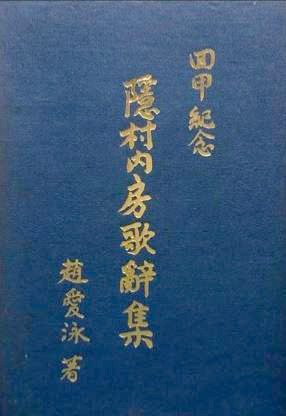 回甲 紀念
隱村內房歌辭集
趙愛泳 著